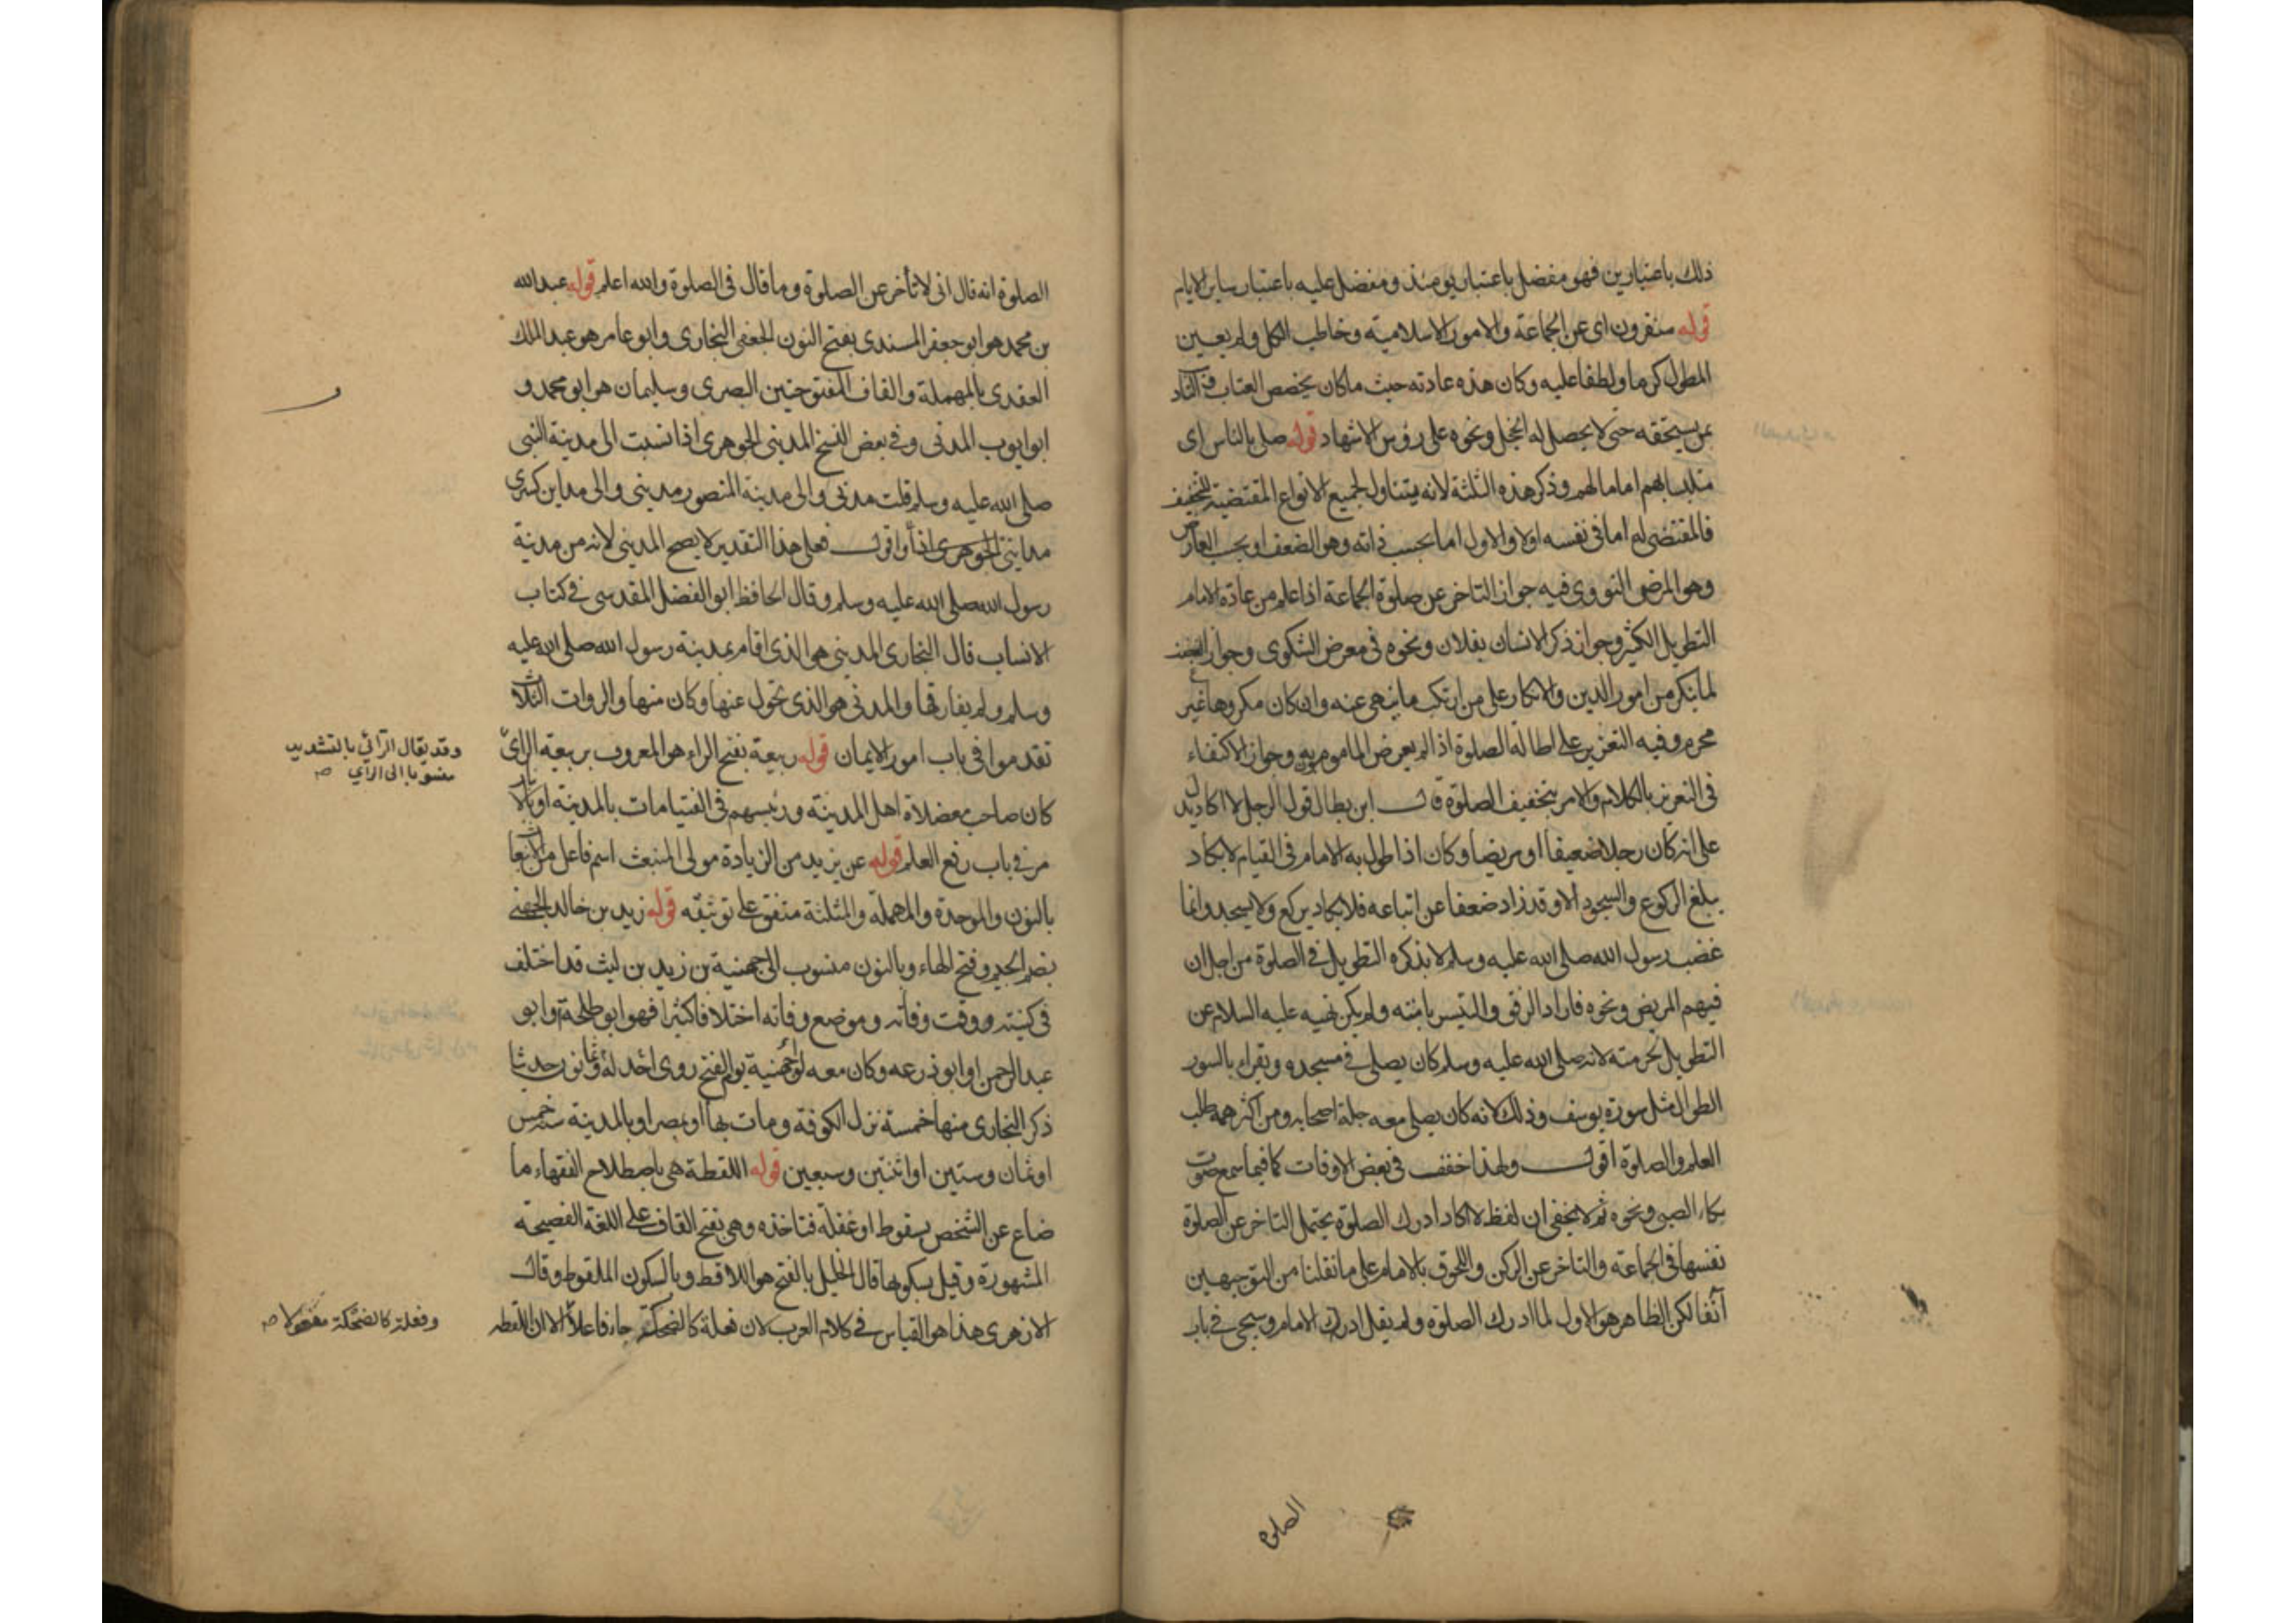 ذلك باعتبارين فهو مفضل باعتبار يومئذ ومفضل عليه باعتبار ساير الايام
قوله منفرون اى عن الجماعة والامور الاسلامية وخاطب الكل ولم يعين
المطول كرما ولطفا عليه وكان هذه عادته حيث ماكان يخصص العتاب
بمن يستحقه حتى لا يحصل له الخجل ونحوه على رؤس الاشهاد قوله صلى بالناس اى
متلبسا بهم اماما لهم وذكر هذه الثلثة لانه يتناول لجميع الانواع المقتضية للتخفيف
فالمقتضى له اما فى نفسه اولا والاول اما بحسب ذاته وهو الضعف او بحسب العارض
وهو المرض النووى فيه جواز التاخر عن صلوة الجماعة اذا علم من عادة الامام
التطويل الكثير وجواز ذكر الانسان بفلان ونحوه فى معرض الشكوى وجواز الغضب
لما ينكر من امور الدين والانكار على من ارتكب ما ينهى عنه وان كان مكروها غير
محرم وفيه التعزير على اطالة الصلوة اذا لم يعرض الماموم به وجواز الاكتفاء
فى التعزير بالكلام والامر بتخفيف الصلوة قال ابن بطال قول الرجل لا اكاد يدل
على انه كان رجلا ضعيفا او مريضا وكان اذا طول به الامام فى القيام لا يكاد
يبلغ الركوع والسجود الا وقد زاد ضعفا عن اتباعه فلا يكاد يركع ولا يسجد وانما
غضب رسول الله صلى الله عليه وسلم لانه كره التطويل فى الصلوة من اجل ان
فيهم المريض ونحوه فاراد الرفق والتيسير بامته ولم يكن نهيه عليه السلام عن
التطويل لحرمته لانه صلى الله عليه وسلم كان يصلى فى مسجده ويقراء بالسور
الطوال مثل سورة يوسف وذلك لانه كان يصلى معه جلة اصحابه ومن اكثر همه طلب
العلم والصلوة اقول ولهذا خفف فى بعض الاوقات كما فيما سمع صوت
بكاء الصبى ونحوه ثم لا يخفى ان لفظ لا اكاد ادرك الصلوة يحتمل التاخر عن الصلوة
نفسها فى الجماعة والتاخر عن الركن واللحوق بالامام على ما نقلنا من التوجيهين
آنفا لكن الظاهر هو الاول لما ادرك الصلوة ولم يقل ادرك الامام وسيجى فى باب
الصلوة
الصلوة انه قال انى لاتأخر عن الصلوة وما قال فى الصلوة والله اعلم قوله عبد الله
بن محمد هو ابو جعفر المسندى بفتح النون الجعفى البخارى وابو عامر هو عبد الملك
العقدى بالمهملة والقاف المفتوحتين البصرى وسليمان هو ابو محمد و
ابو ايوب المدنى وفى بعض النسخ المدينى الجوهرى اذا نسبت الى مدينة النبى
صلى الله عليه وسلم قلت مدنى والى مدينة المنصور مدينى والى مداين كسرى
مداينى اقول فعلى هذا التقدير لا يصح المدينى لانه من مدينة
رسول الله صلى الله عليه وسلم وقال الحافظ ابو الفضل المقدسى فى كتاب
الانساب قال البخارى المدينى هو الذى اقام بمدينة رسول الله صلى الله عليه
وسلم ولم يفارقها والمدنى هو الذى تحول عنها وكان منها والروات الثلاث
تقدموا فى باب امور الايمان قوله ربيعة بفتح الراء هو المعروف بربيعة الراى
وقد يقال الرائى بالتشديد
منسوبا الى الراى
كان صاحب معضلاة اهل المدينة ورئيسهم فى الفتيا مات بالمدينة او بالانبار
مر فى باب رفع العلم قوله عن يزيد من الزيادة مولى المنبعث اسم فاعل من الانبعاث
بالنون والموحدة والمهملة والمثلثة متفق على توثيقه قوله زيد بن خالد الجهنى
بضم الجيم وفتح الهاء وبالنون منسوب الى جهنية بن زيد بن ليث قد اختلف
فى كنيته ووقت وفاته وموضع وفاته اختلافا كثيرا فهو ابو طلحة او ابو
عبد الرحمن او ابو زرعه وكان معه لواء جهنية يوم الفتح روى احد وثمانون حديثا
ذكر البخارى منها خمسة نزل الكوفة ومات بها او بمصر او بالمدينة سنة خمس
او ثمان وستين او اثنتين وسبعين قوله اللقطة هى باصطلاح الفقهاء ما
ضاع عن الشخص بسقوط او غفلة فتاخذه وهى بفتح القاف على اللغة الفصيحة
المشهورة وقيل بسكونها قال الخليل بالفتح هو اللاقط وبالسكون الملقوط وقال
الازهرى هذا هو القياس فى كلام العرب لان فعلة كالضحكة جاء فاعلا الا ان اللقطه
وفعلة كالضحكة مفعولا